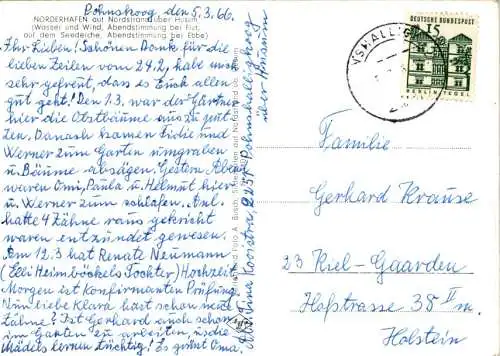 Pohnshoog den 5.3.66.
NORDERHAFEN auf Nordstrand über Husum
(Wasser und Wind, Abendstimmung bei Flut,
auf dem Seedeiche, Abendstimmung bei Ebbe)
Ihr Lieben! Schönen Dank für die
lieben Zeilen vom 24.2, habe mich
sehr gefreut, dass es Euch allen
gut geht! Den 1.3. war der Gärtner
hier die Obstbäume aus zu put-
zen. Danach kamen Lidie und
Werner zum Garten umgraben
u Bäume absägen. Gestern Abend
waren Omi, Paula u Helmut hier
u Werner zum schlafen.
hatte 4 Zähne raus gekricht
waren entzündet gewesen.
Am 12.3 hat Renate Neumann
(Elli Heimböckels Tochter) Hochzeit
Morgen ist Konfirmanten Prüfung
Nun liebe Klara hast schon neue
Zähne? Ist Gerhard auch schon
im Garten zu arbeiten, u die
Mädels lernen tüchtig! Es grüßt Oma.
Anna Kooistra, 2251 Pohnshalligkoog
über Husum
DEUTSCHE BUNDESPOST
15
BERLIN
Familie
Gerhard Krause
23 Kiel-Gaarden
Hofstrasse 38 II m.
Holstein